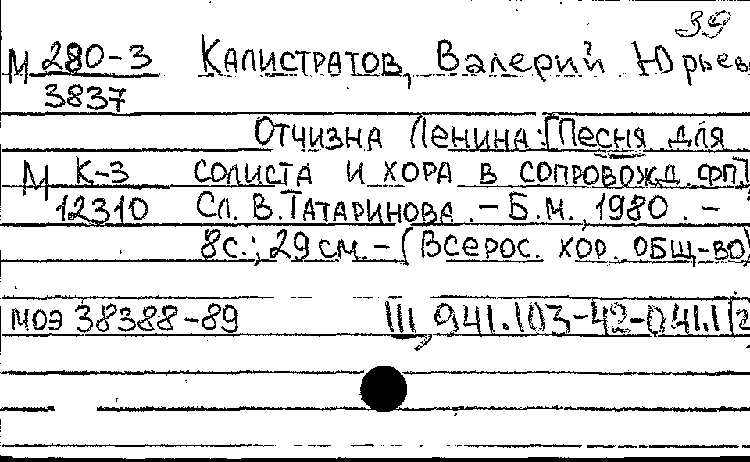 39
М 280-3 Калистратов, Валерий Юрьев
3837
Отчизна Ленина: [Песня для
М К-3 солиста и хора в сопровожд. фп.]
12310 Сл. В. Татаринова. - Б.М., 1980. -
8с.; 29см. - (Всерос. хор. общ-во)
МОЭ 38388-89 III, 941.103-42-041.1(2